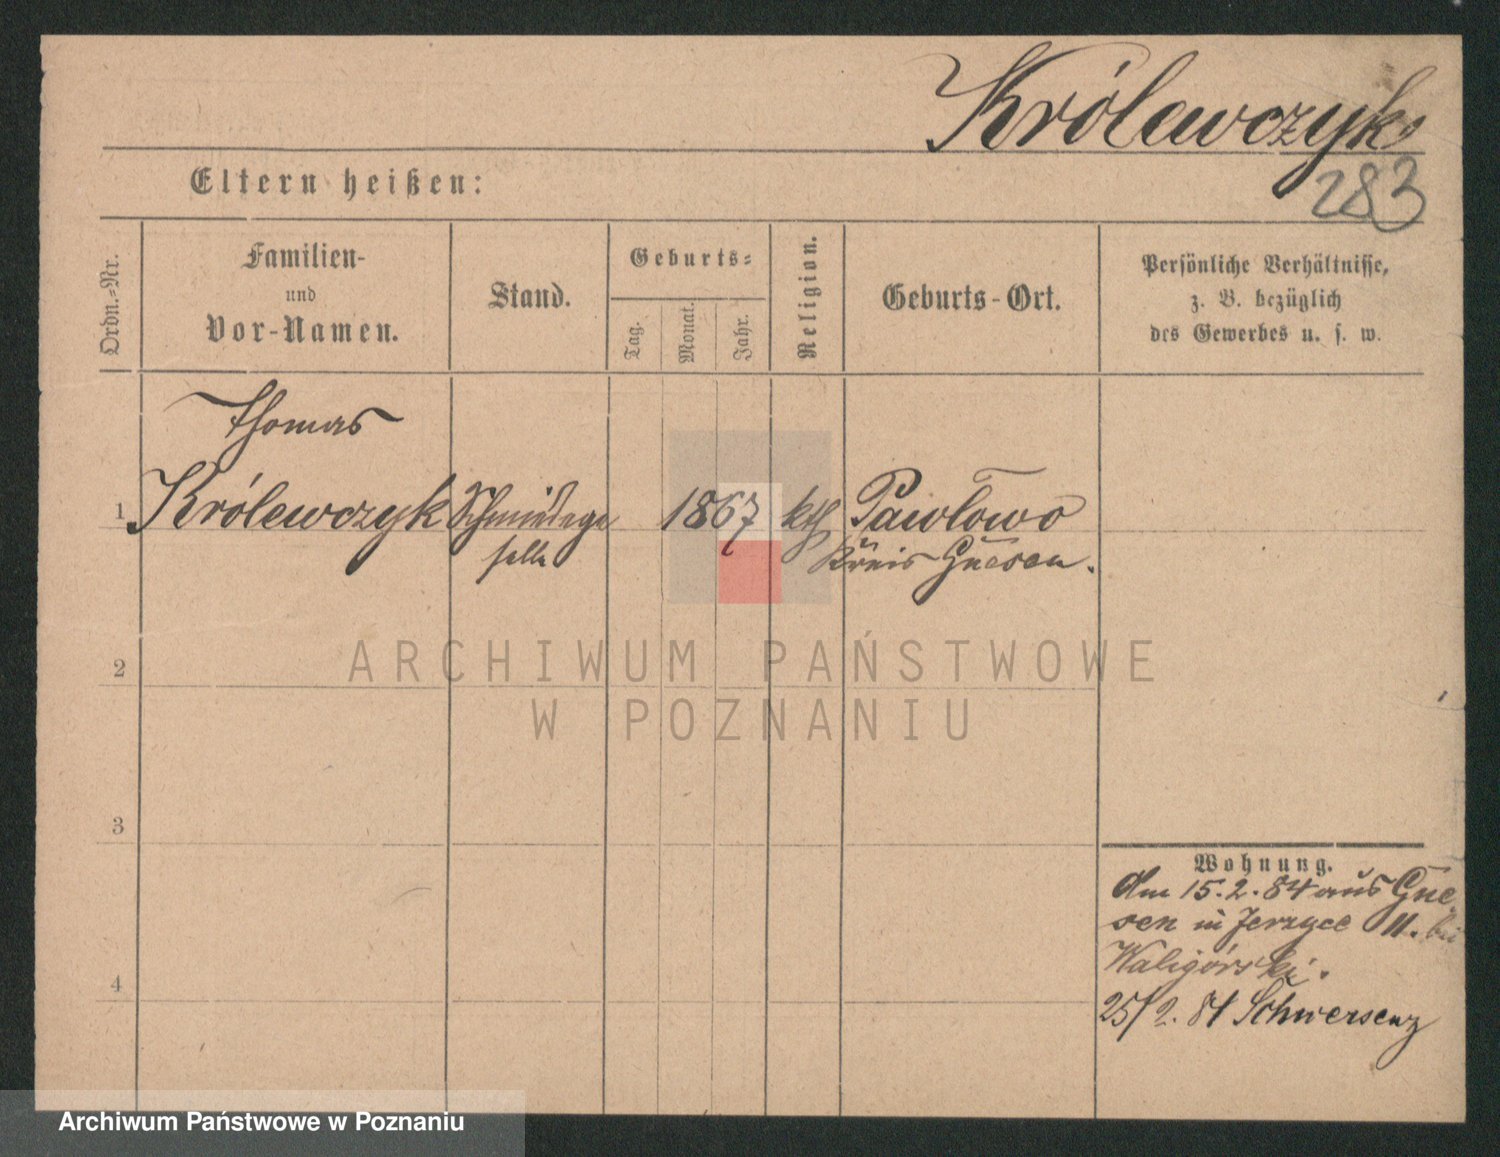 Królewczyk
283
Eltern heißen:
Ordn.-Nr.
Familien-
und
Vor-Namen.
Stand.
Geburts-
Tag.
Monat.
Jahr.
Religion.
Geburts-Ort.
Persönliche Verhältnisse,
z. B. bezüglich
des Gewerbes u. s. w.
Thomas
1 Królewczyk Schmiedege 1867 kth Pawłowo
selle Kreis Gnesen.
ARCHIWUM PAŃSTWOWE
2
W POZNANIU
3
Wohnung.
Am 15.2.84 aus Gne-
sen in Jerzyce 11. bei
Waligórski.
4
25/2. 84 Schwersenz
Archiwum Państwowe w Poznaniu